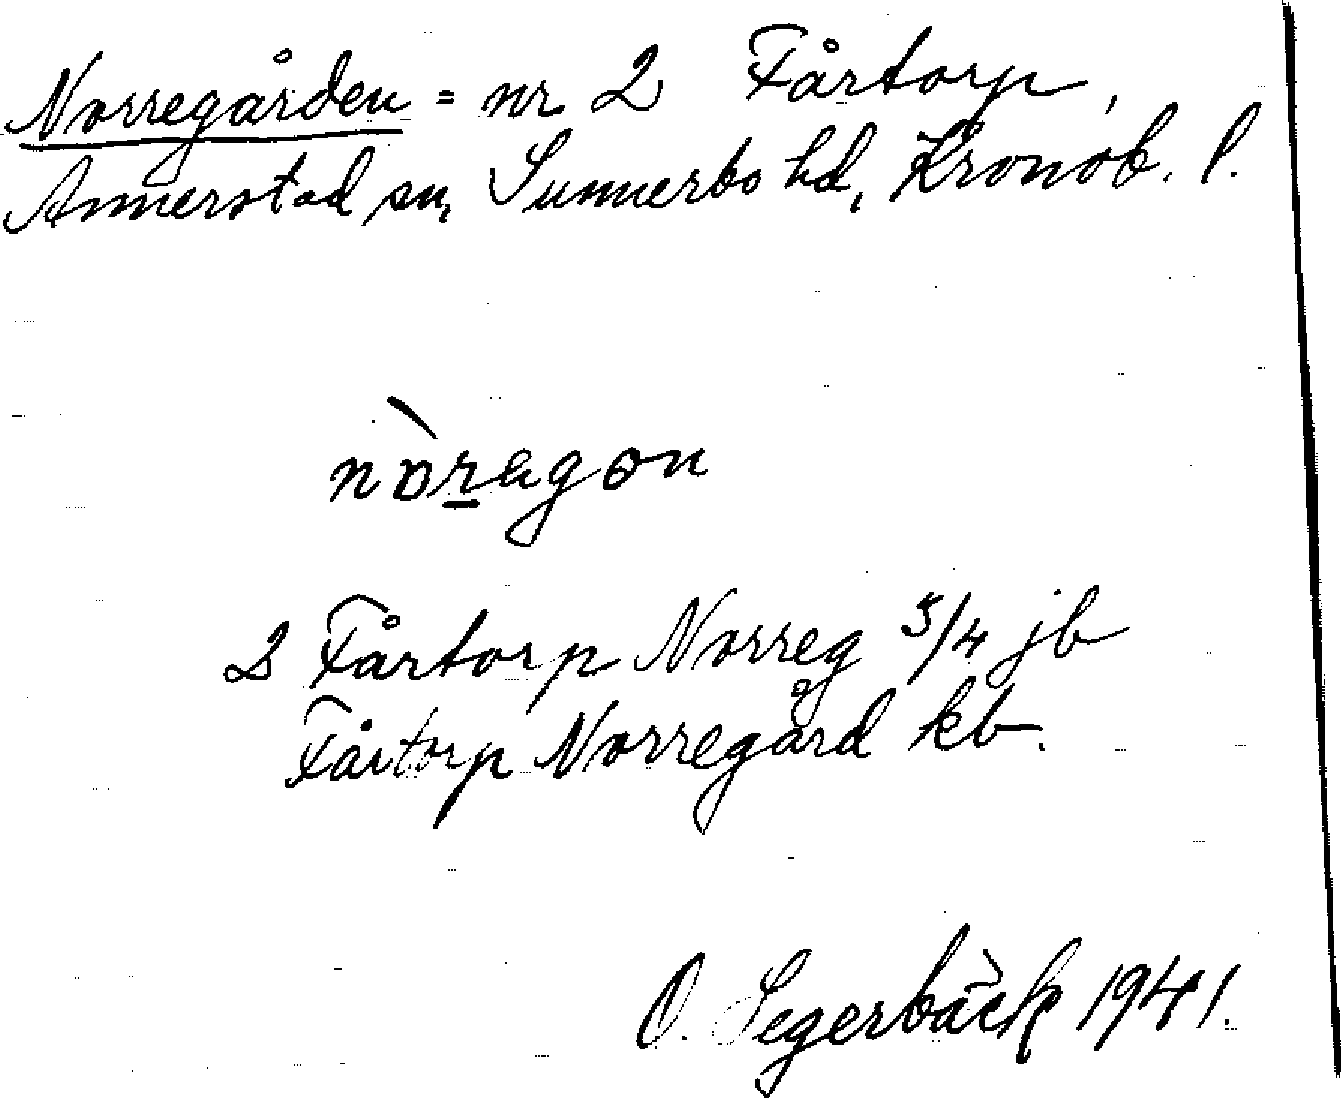 Norregården = nr 2 Fårtorp,
Annerstad sn, Sunnerbo hd, Kronob. l.
nòragon
2 Fårtorp Norreg 5/4 jb
Fårtorp Norregård kb.
O. Segerbäck 1941.